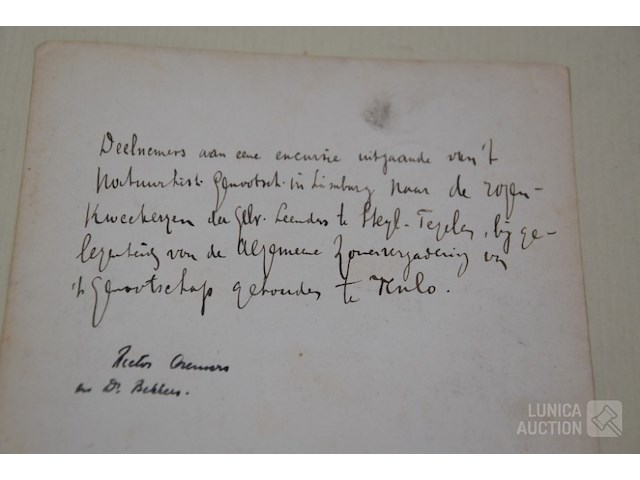 Deelnemers aan eene excursie uitgaande van 't
Natuurhist. Genootsch. in Limburg naar de rozen-
kweekerijen der Gebr. Leenders te Steyl-Tegelen, bij ge-
legenheid van de Algemeene Zomervergadering van
't Genootschap gehouden te Venlo.
Rector Cremers
en Dr. Bekkers.
LUNICA
AUCTION